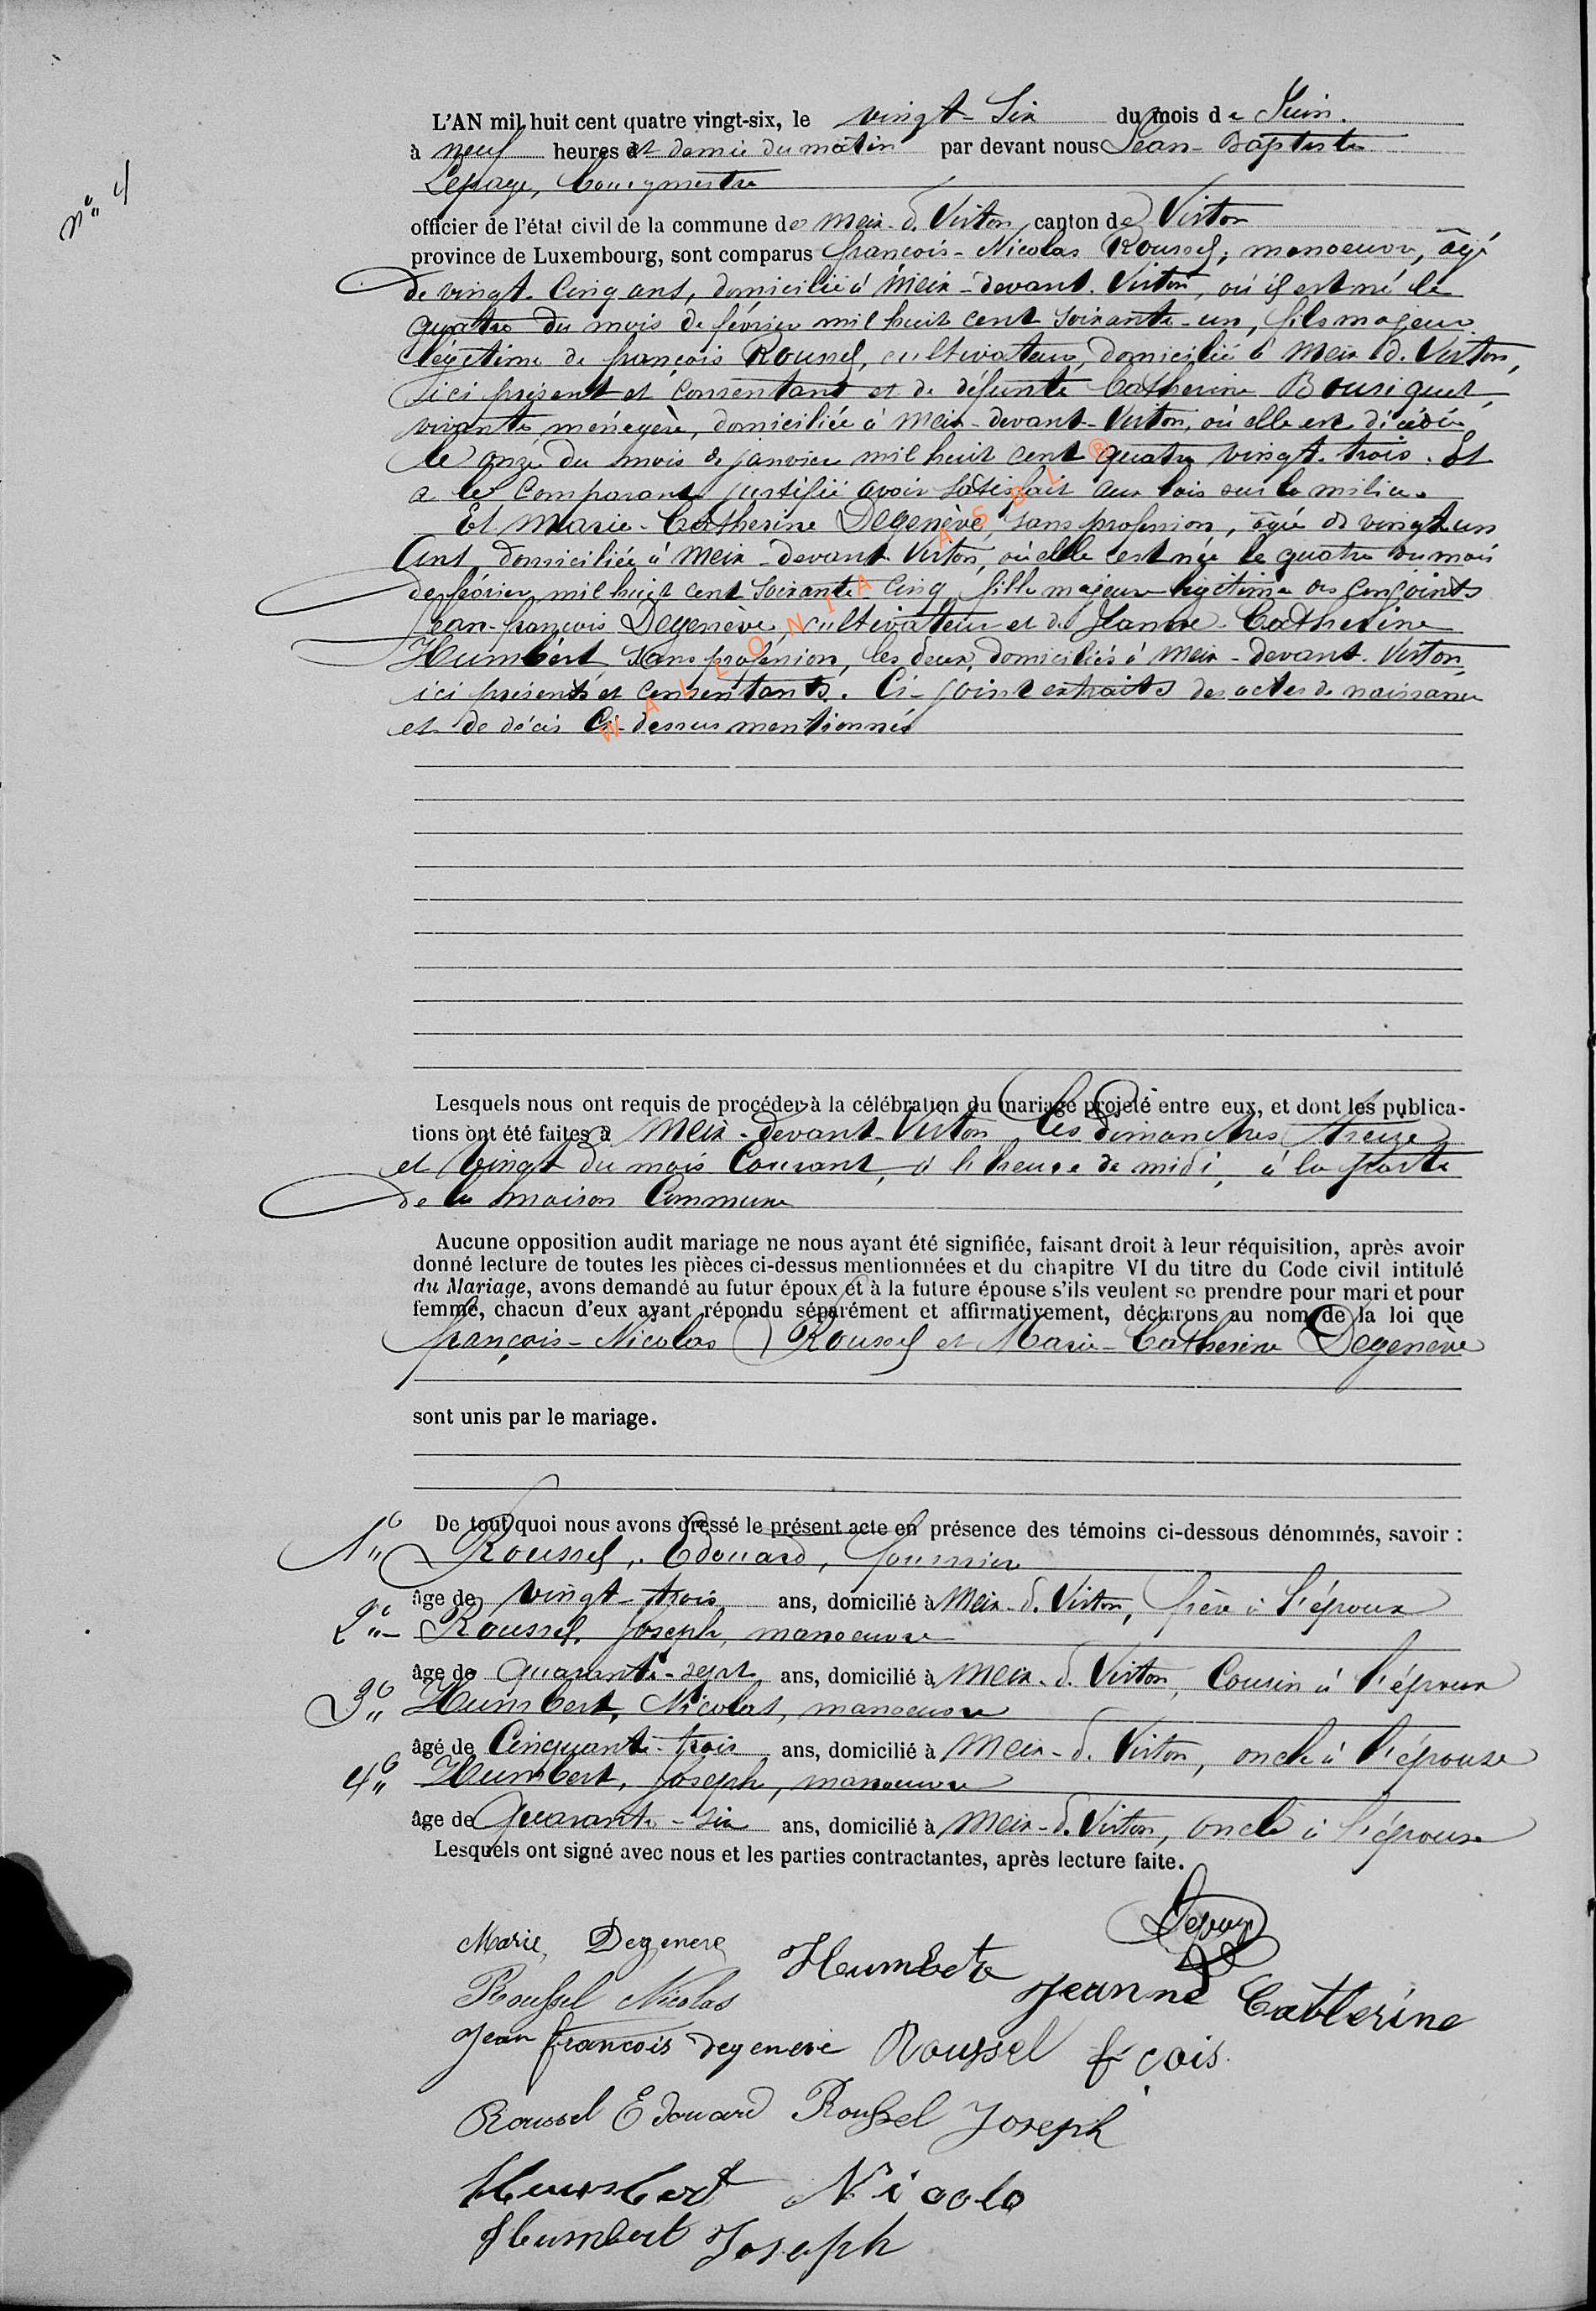 N° 4
L'AN mil huit cent quatre vingt-six, le vingt-Six du mois de Juin.
à neuf heures et demie du matin par devant nous Jean-Baptiste
Lepage, bourgmestre
officier de l'état civil de la commune de Meix-d. Virton, canton de Virton
province de Luxembourg, sont comparus françois-Nicolas Roussel, manoeuvre, âgé
de vingt-Cinq ans, domicilié à Meix-devant-Virton, où il est né le
quatre du mois de février mil huit cent soixante-un, fils mageur
légetime de françois Roussel, cultivateur, domicilié à Meix d. Virton,
ici présent et consentant et de défunte Catherine Bousiquet,
vivante, ménagère, domiciliée à Meix-devant-Virton, où elle est décédée
le onze du mois de janvier mil huit cent quatre vingt-trois. Et
a le Comparant justifié avoir satisfait aux lois sur la milice.
Et Marie-Catherine Degenève, sans profession, âgée de vingt un
Ans, domiciliée à Meix-devant-Virton, où elle est née le quatre du mois
de février mil huit cent soixante-Cinq, fille majeure légitime des conjoints
Jean-françois Degenève, cultivateur et de Jeanne-Catherine
Humbert, sans profession, les deux domiciliés à Meix-devant-Virton,
ici présents et consentants. Ci-joint extraits des actes de naissance
et de décès Ci-dessus mentionnés
WALLONIA ASBL ®
Lesquels nous ont requis de procéder à la célébration du mariage projeté entre eux, et dont les publica-
tions ont été faites à Meix-devant-Virton, les dimanches treize
et vingt du mois Courant, à l'heure de midi, à la porte
de la maison Commune
Aucune opposition audit mariage ne nous ayant été signifiée, faisant droit à leur réquisition, après avoir
donné lecture de toutes les pièces ci-dessus mentionnées et du chapitre VI du titre du Code civil intitulé
du Mariage, avons demandé au futur époux et à la future épouse s'ils veulent se prendre pour mari et pour
femme, chacun d'eux ayant répondu séparément et affirmativement, déclarons au nom de la loi que
françois-Nicolas Roussel et Marie-Catherine Degenève
sont unis par le mariage.
De tout quoi nous avons dressé le présent acte en présence des témoins ci-dessous dénommés, savoir :
1° Roussel, Edouard,
âge de vingt-trois ans, domicilié à Meix-d. Virton, frère à l'époux
2° Roussel, Joseph, manoeuvre
âge de quarante-sept ans, domicilié à Meix-d. Virton, Cousin à l'époux
3° Humbert, Nicolas, manoeuvre
âgé de Cinquante-trois ans, domicilié à Meix-d. Virton, oncle à l'épouse
4° Humbert, Joseph, manoeuvre
âge de Quarante-six ans, domicilié à Meix-d. Virton, oncle à l'épouse
Lesquels ont signé avec nous et les parties contractantes, après lecture faite.
Lepage
Marie Degeneve Humbert Jeanne Catterine
Roussel Nicolas
Jean francois degeneve Roussel fçois
Roussel Edouard Roussel Joseph
Humbert Nicola
Humbert Joseph